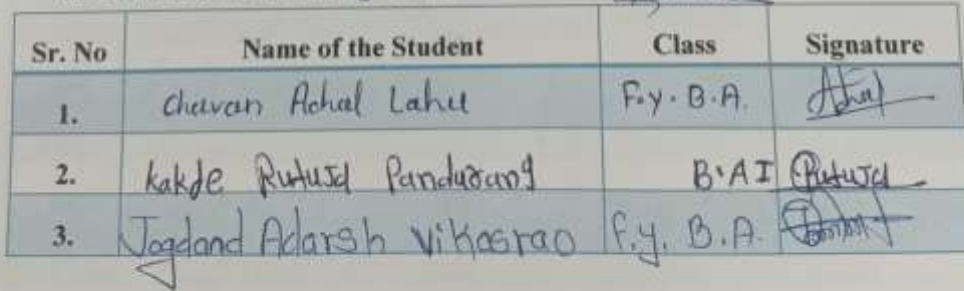 Sr. No Name of the Student Class Signature
1. Chavan Achal Lahu F.y. B.A. Achal
2. Kakde Rutuja Pandurang B.A I Rutuja
3. Jogdand Adarsh Vikasrao F.y. B.A.